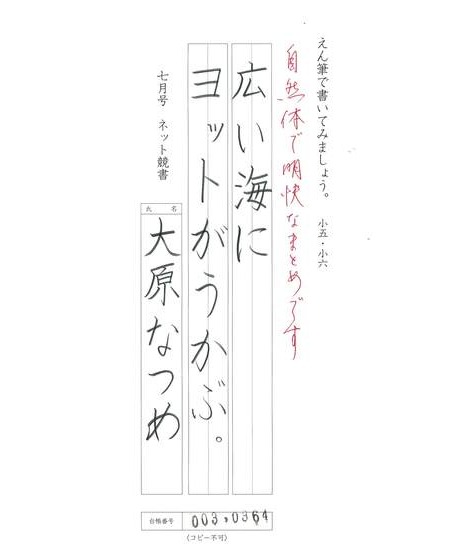 えん筆で書いてみましょう。 小五・小六
自然体で明快なまとめです
広い海に
ヨットがうかぶ。
七月号 ネット競書
氏名
大原なつめ
台帳番号 003,0364
(コピー不可)